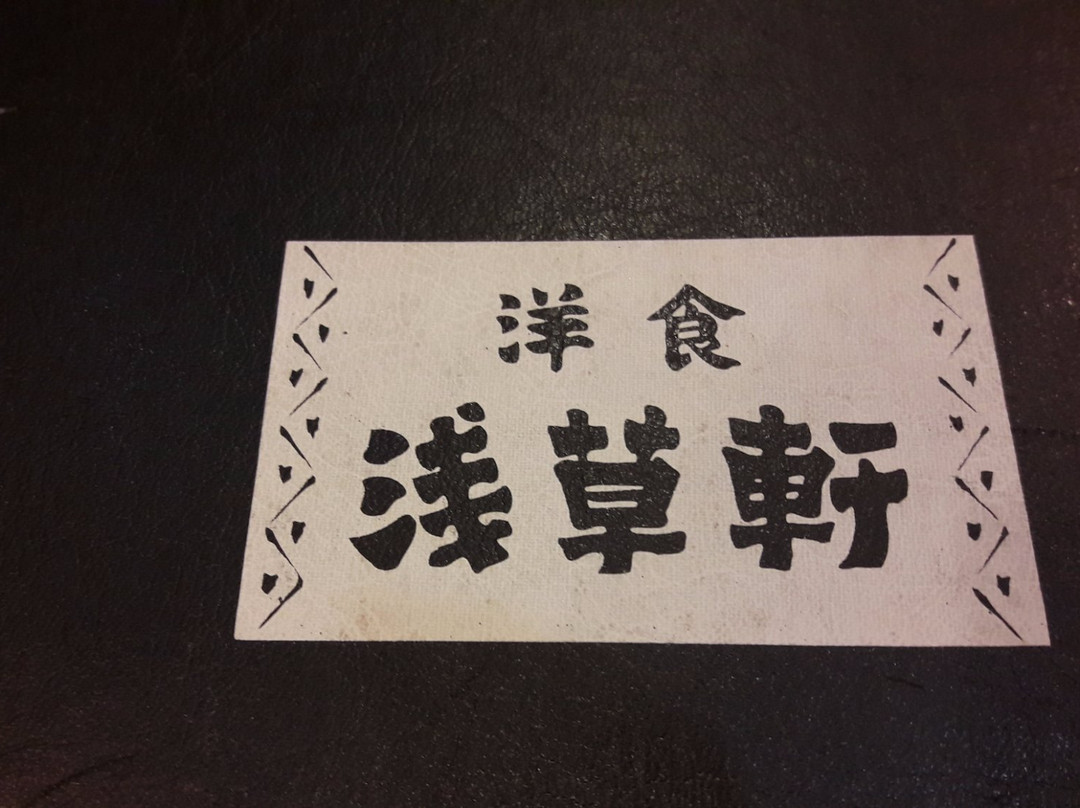 洋食
浅草軒